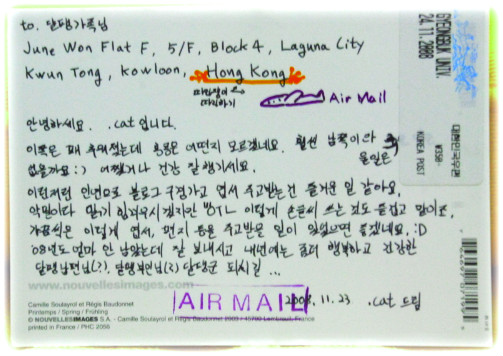 to. 달팽가족님
June Won Flat F, 5/F, Block 4, Laguna City
Kwun Tong, Kowloon, Hong Kong
따라쟁이
따라하기
Air Mail
GYEONGIN UNIV.
24.11.2008
대한민국우편
KOREA POST
₩350
안녕하세요. .cat 입니다.
이곳은 꽤 추워졌는데 홍콩은 어떤지 모르겠네요. 훨씬 남쪽이라 추울일은
없을까요:) 어쨌거나 건강 잘 챙기세요.
이런저런 인연으로 블로그 구경가고 엽서 주고받는건 즐거운 일 같아요.
악필이라 읽기 힘겨우시겠지만 이렇게 손글씨 쓰는 것도 즐겁고 말이죠.
가끔씩은 이렇게 엽서, 편지 등을 주고받을 일이 있었으면 좋겠네요. :D
'08년도 얼마 안 남았는데 잘 보내시고 내년에는 좀더 행복하고 건강한
달팽남편님(?), 달팽부인님(?) 달팽군 되시길 ...
www.nouvellesimages.com
Camille Soulayrol et Régis Baudonnet
Printemps / Spring / Frühling
© NOUVELLES IMAGES S.A.
Camille Soulayrol et Régis Baudonnet 2003 / 45700 Lombreuil, France
printed in France / PHC 2056
AIR MAIL
2008. 11. 23
.cat 드림